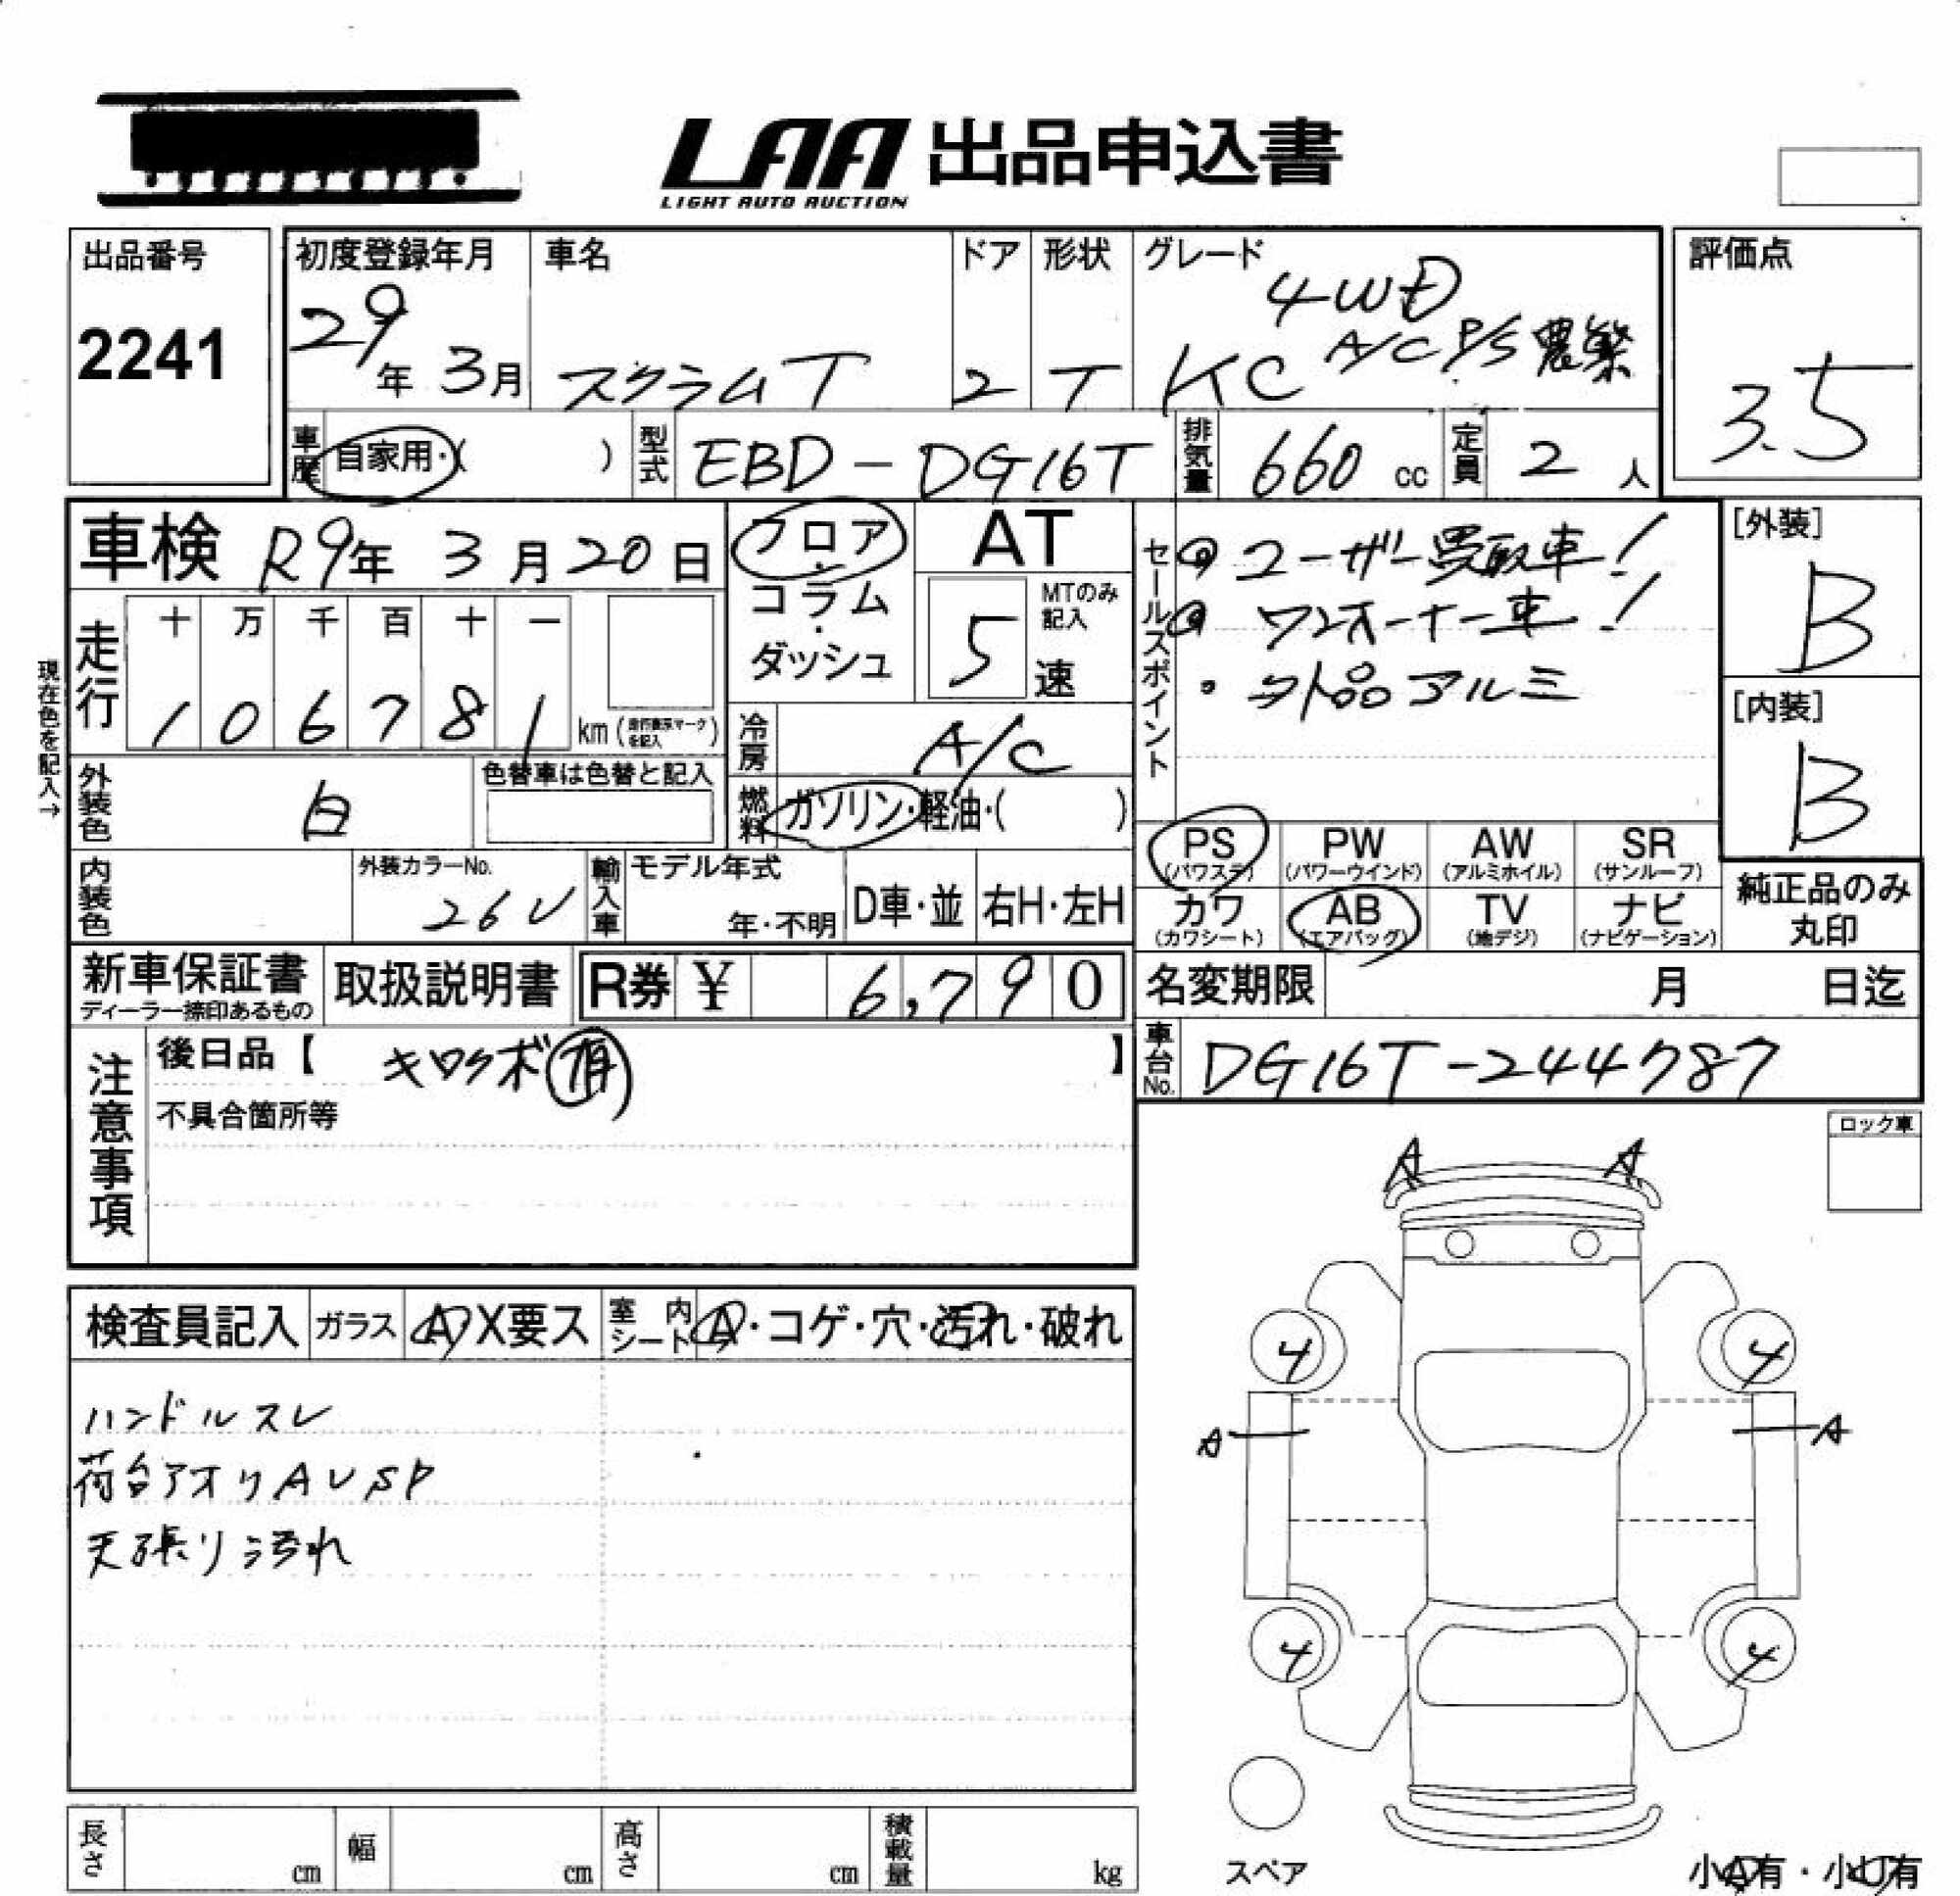 LAA 出品申込書
LIGHT AUTO AUCTION
出品番号
2241
初度登録年月
29年 3月
車名
スクラムT
ドア
2
形状
T
グレード
4WD
KC A/C P/S 農繁
評価点
3.5
車歴 自家用・( )
型式 EBD-DG16T
排気量 660 cc
定員 2 人
車検 R9年 3月20日
フロア・コラム・ダッシュ
AT
MTのみ記入
5 速
現在色を記入→
走行
十 万 千 百 十 一
1 0 6 7 8 1 km (走行表示マークを記入)
冷房 A/C
燃料 ガソリン・軽油・( )
外装色 白
色替車は色替と記入
内装色
外装カラーNo.
26U
輸入車
モデル年式
年・不明
D車・並
右H・左H
セールスポイント
◎ ユーザー買取車!
◎ ワンオーナー車!
・外品アルミ
[外装]
B
[内装]
B
PS (パワステ)
PW (パワーウインド)
AW (アルミホイル)
SR (サンルーフ)
カワ (カワシート)
AB (エアバッグ)
TV (地デジ)
ナビ (ナビゲーション)
純正品のみ丸印
新車保証書
ディーラー捺印あるもの
取扱説明書
R券 ¥ 6,790
名変期限 月 日迄
車台No. DG16T-244787
注意事項
後日品【 キロクボ有 】
不具合箇所等
ロック車
検査員記入
ガラス A X要ス
室内シート A・コゲ・穴・汚れ・破れ
ハンドルスレ
荷台アオリAUSP
天張り汚れ
A A
4 4
A A
4 4
スペア
小A有・小U有
長さ cm
幅 cm
高さ cm
積載量 kg